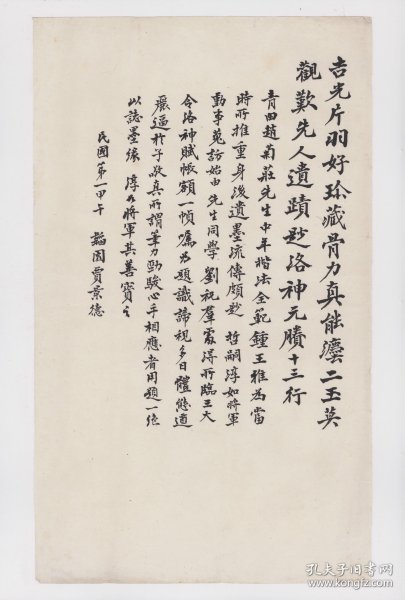 吉光片羽好珍藏骨力真能儷二王莫
觀歎先人遺蹟尠洛神元賸十三行
青田趙菊莊先生中年楷法全範鍾王雅為當
時所推重身後遺墨流傳頗尠哲嗣淳如將軍
勤事蒐訪始由先生同學劉祝羣處得所臨王大
令洛神賦橫額一幀囑為題識諦視多日體態遒
麗逼於子敬真所謂筆力勁駿心手相應者用題一絕
以誌墨緣淳如將軍其善寶之
民國第一甲午 韜園賈景德
孔夫子旧书网